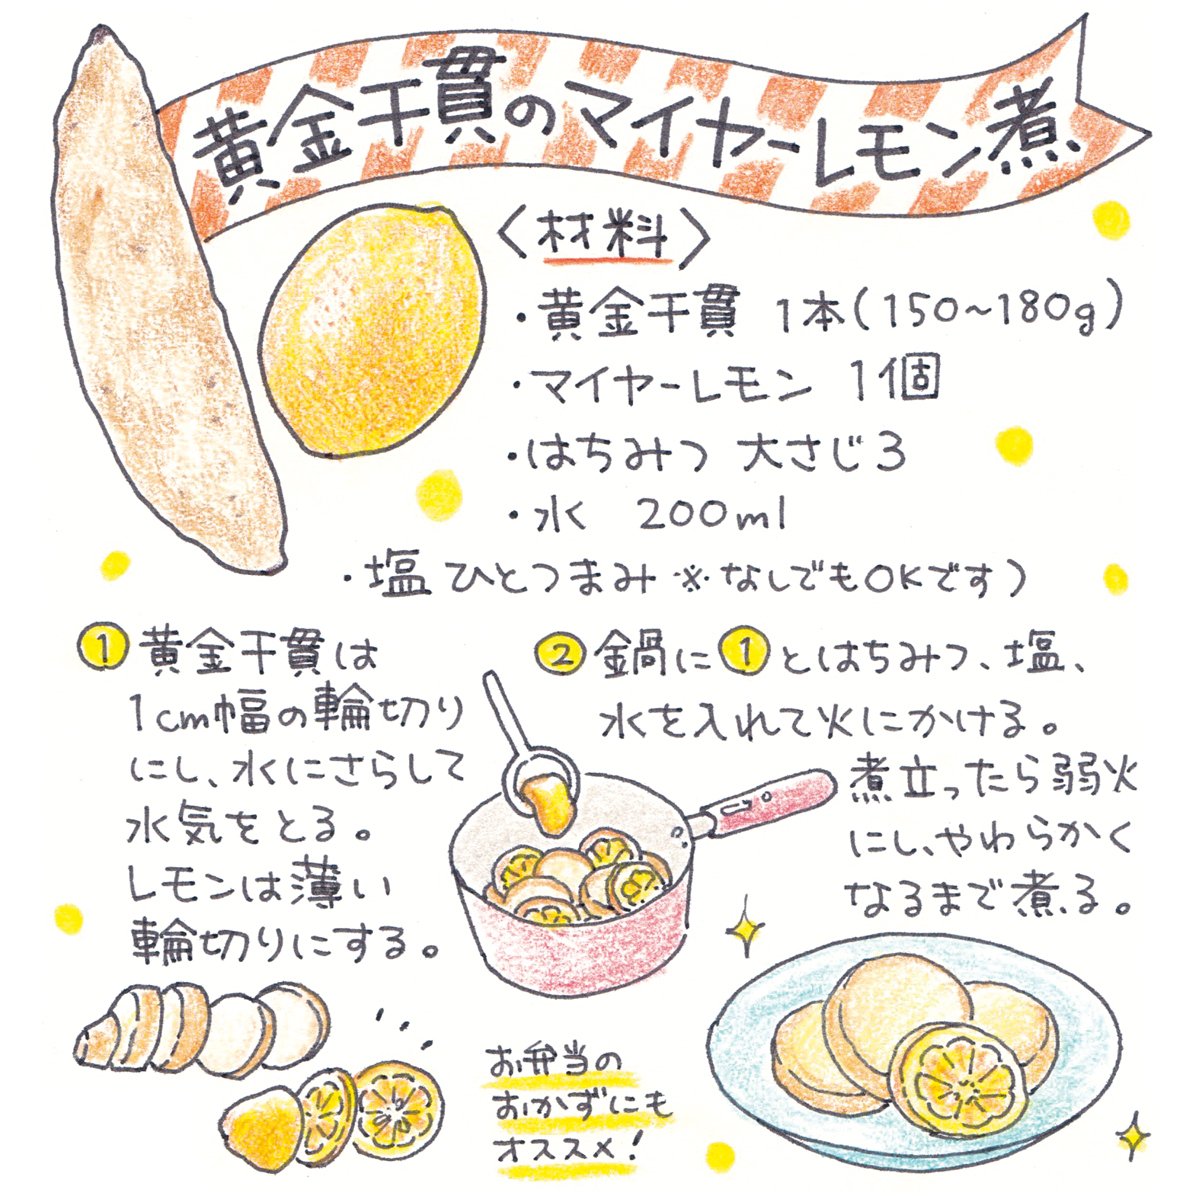 黄金千貫のマイヤーレモン煮
〈材料〉
・黄金千貫 1本(150~180g)
・マイヤーレモン 1個
・はちみつ 大さじ3
・水 200ml
・塩 ひとつまみ ※なしでもOKです)
① 黄金千貫は
1cm幅の輪切り
にし、水にさらして
水気をとる。
レモンは薄い
輪切りにする。
② 鍋に①とはちみつ、塩、
水を入れて火にかける。
煮立ったら弱火
にし、やわらかく
なるまで煮る。
お弁当の
おかずにも
オススメ!